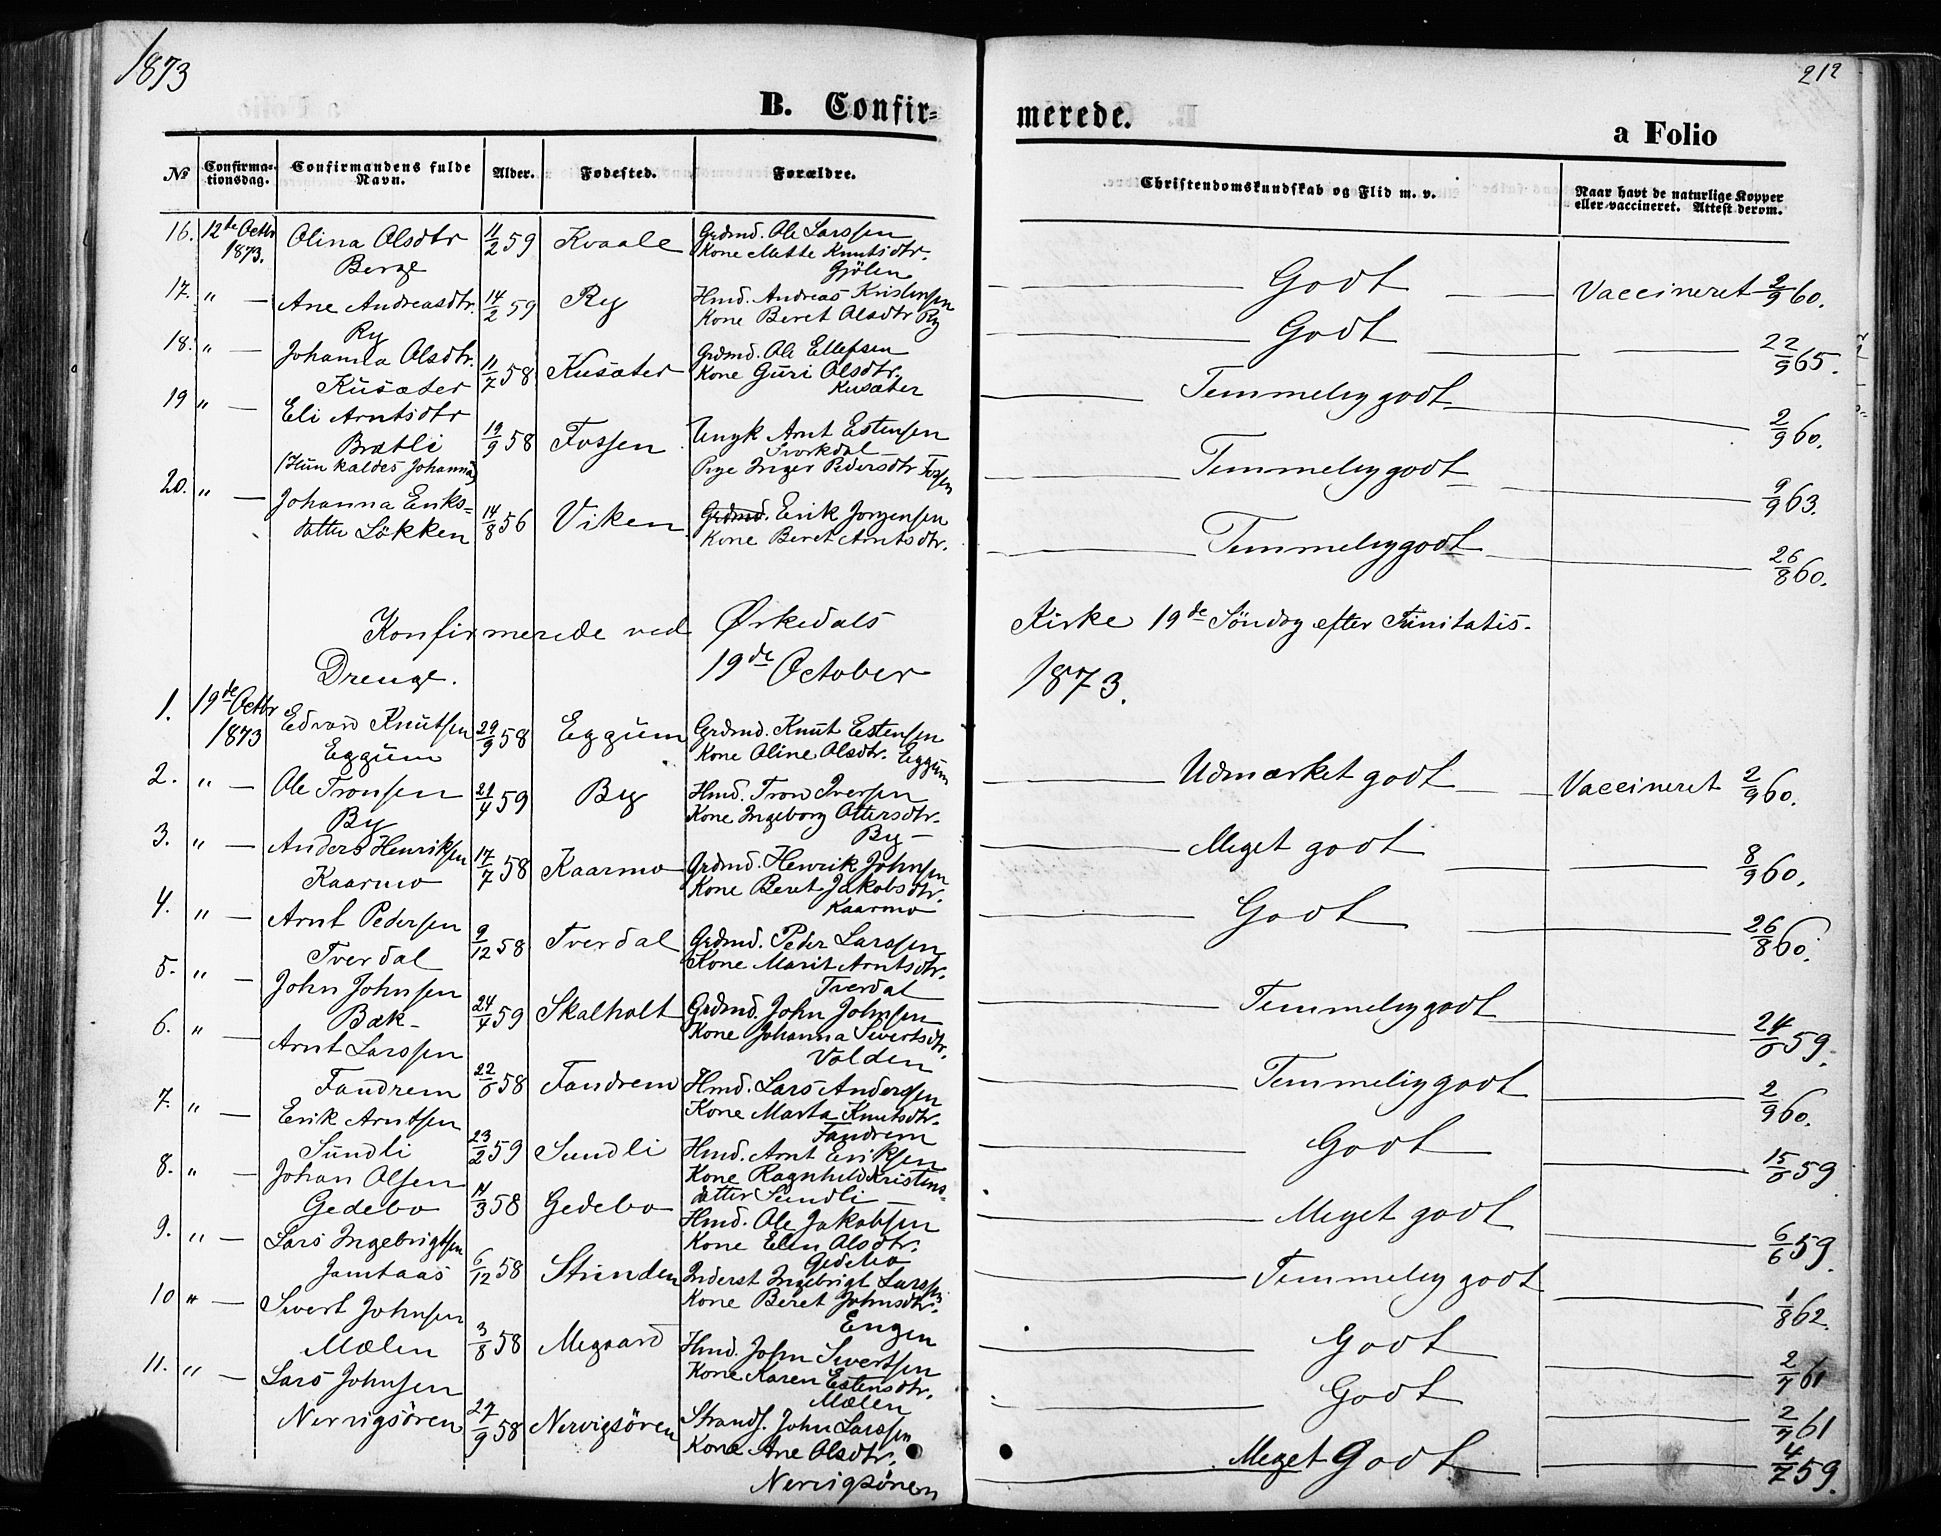 1873
212
B. Confir=
merede.
a Folio
No
Confirma-
tionsdag.
Confirmandens fulde
Navn.
Alder.
Fødested.
Forældre.
Christendomskundskab og Flid m. v.
Naar havt de naturlige Kopper
eller vaccineret. Attest derom.
16. 12te Octbr 1873. Olina Olsdtr Berge 11/2 59 Kvaale Grdmd. Ole Larssen
Kone Mette Knutsdtr.
Gjölen
Godt Vaccineret 2/9 60.
17. " — Ane Andreasdtr. Ry 14/2 59 Ry Hmd. Andreas Kristensen
Kone Beret Olsdtr Ry
Godt — 22/9 65.
18. " — Johanna Olsdtr. Kusæter 11/7 58 Kusæter Grdmd. Ole Ellefsen
Kone Guri Olsdtr.
Kusæter
Temmelig godt — 2/9 60.
19 " — Eli Arntsdtr Brætli
(Hun kaldes Johanna)
19/9 58 Fossen Ungk Arnt Estensen
Svorkdal —
Pige Inger Pedersdtr Fossen
Temmelig godt — 9/9 63.
20. " — Johanna Eriks=
datter Lökken 14/8 56 Viken Grdmd. Erik Jorgensen
Kone Beret Arntsdtr.
Temmelig godt — 26/8 60.
Konfirmerede ved Ørkedals Kirke 19de Söndag efter Trinitatis.
Drenge. 19de October 1873.
1. 19de Octbr 1873 Edvard Knutsen Eggum 29/9 58 Eggum Grdmd. Knut Estensen
Kone Oline Olsdtr. Eggum
Udmærket godt — Vaccineret 2/9 60.
2. " — Ole Tronsen By 21/4 59 By Hmd. Tron Iversen
Kone Ingeborg Ottersdtr.
By —
Meget godt — 8/9 60.
3. " — Anders Henriksen Kaarmo 17/7 58 Kaarmo Grdmd. Henrik Johnsen
Kone Beret Jakobsdtr.
Kaarmo
Godt — 26/8 60.
4. " — Arnt Pedersen Tverdal 9/12 58 Tverdal Grdmd. Peder Larssen
Kone Marit Arntsdtr.
Tverdal
Temmelig godt — 24/6 59.
5. " — John Johnsen Bak — 24/4 59 Skalholt Grdmd. John Johnsen
Kone Johanna Sivertsdtr.
Volden
Temmelig godt — 2/9 60.
6. " — Arnt Larssen Fandrem 22/6 58 Fandrem Hmd. Lars Anderssen
Kone Marta Knutsdtr.
Fandrem
Godt — 15/6 59
7. " — Erik Arntsen Sundli 23/2 59 Sundli Hmd. Arnt Eriksen
Kone Ragnhild Kristens=
datter Sundli —
Meget godt — 6/6 59.
8. " — Johan Olsen Gedebo 11/3 58 Gedebo Hmd. Ole Jakobsen
Kone Elen Olsdtr.
Gedebo
Temmelig godt — 1/8 62.
9. " — Lars Ingebrigtsen Jamtaas 6/12 58 Inderst Ingebrigt Larssen
Kone Beret Johnsdtr.
Engen
Godt — 2/7 61
10 " — Sivert Johnsen Mælen 3/8 58 Megaard Hmd. John Sivertsen
Kone Karen Estensdtr.
Mælen
Godt — 2/7 61
11. " — Lars Johnsen Nervigsören 27/9 58 Nervigsören Strands. John Larssen
Kone Ane Olsdtr.
Nervigsören
Meget Godt — 4/7 59.